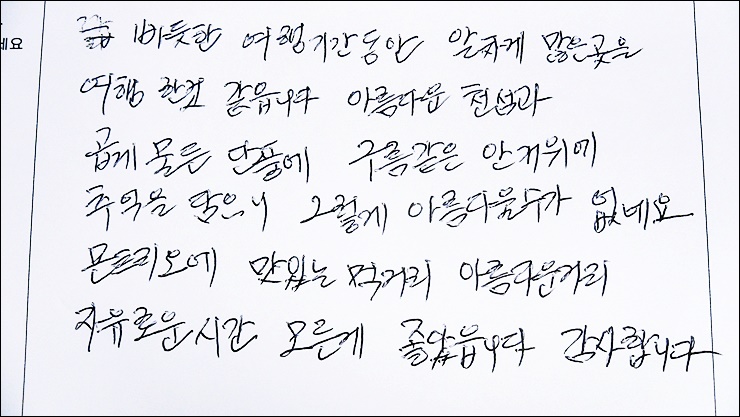 네요
빠듯한 여행기간동안 알차게 많은곳을
여행 한것 같읍니다 아름다운 천섬과
곱게 물든 단풍에 구름같은 안개위에
추억을 담으니 그렇게 아름다울수가 없네요
몬트리오에 맛있는 먹거리 아름다운거리
자유로운시간 모든게 좋았읍니다 감사합니다